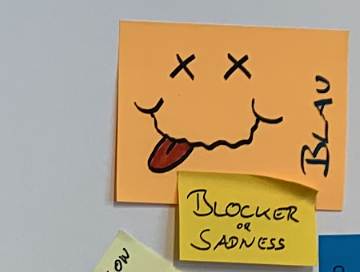 BLAU
BLOCKER
OR
SADNESS